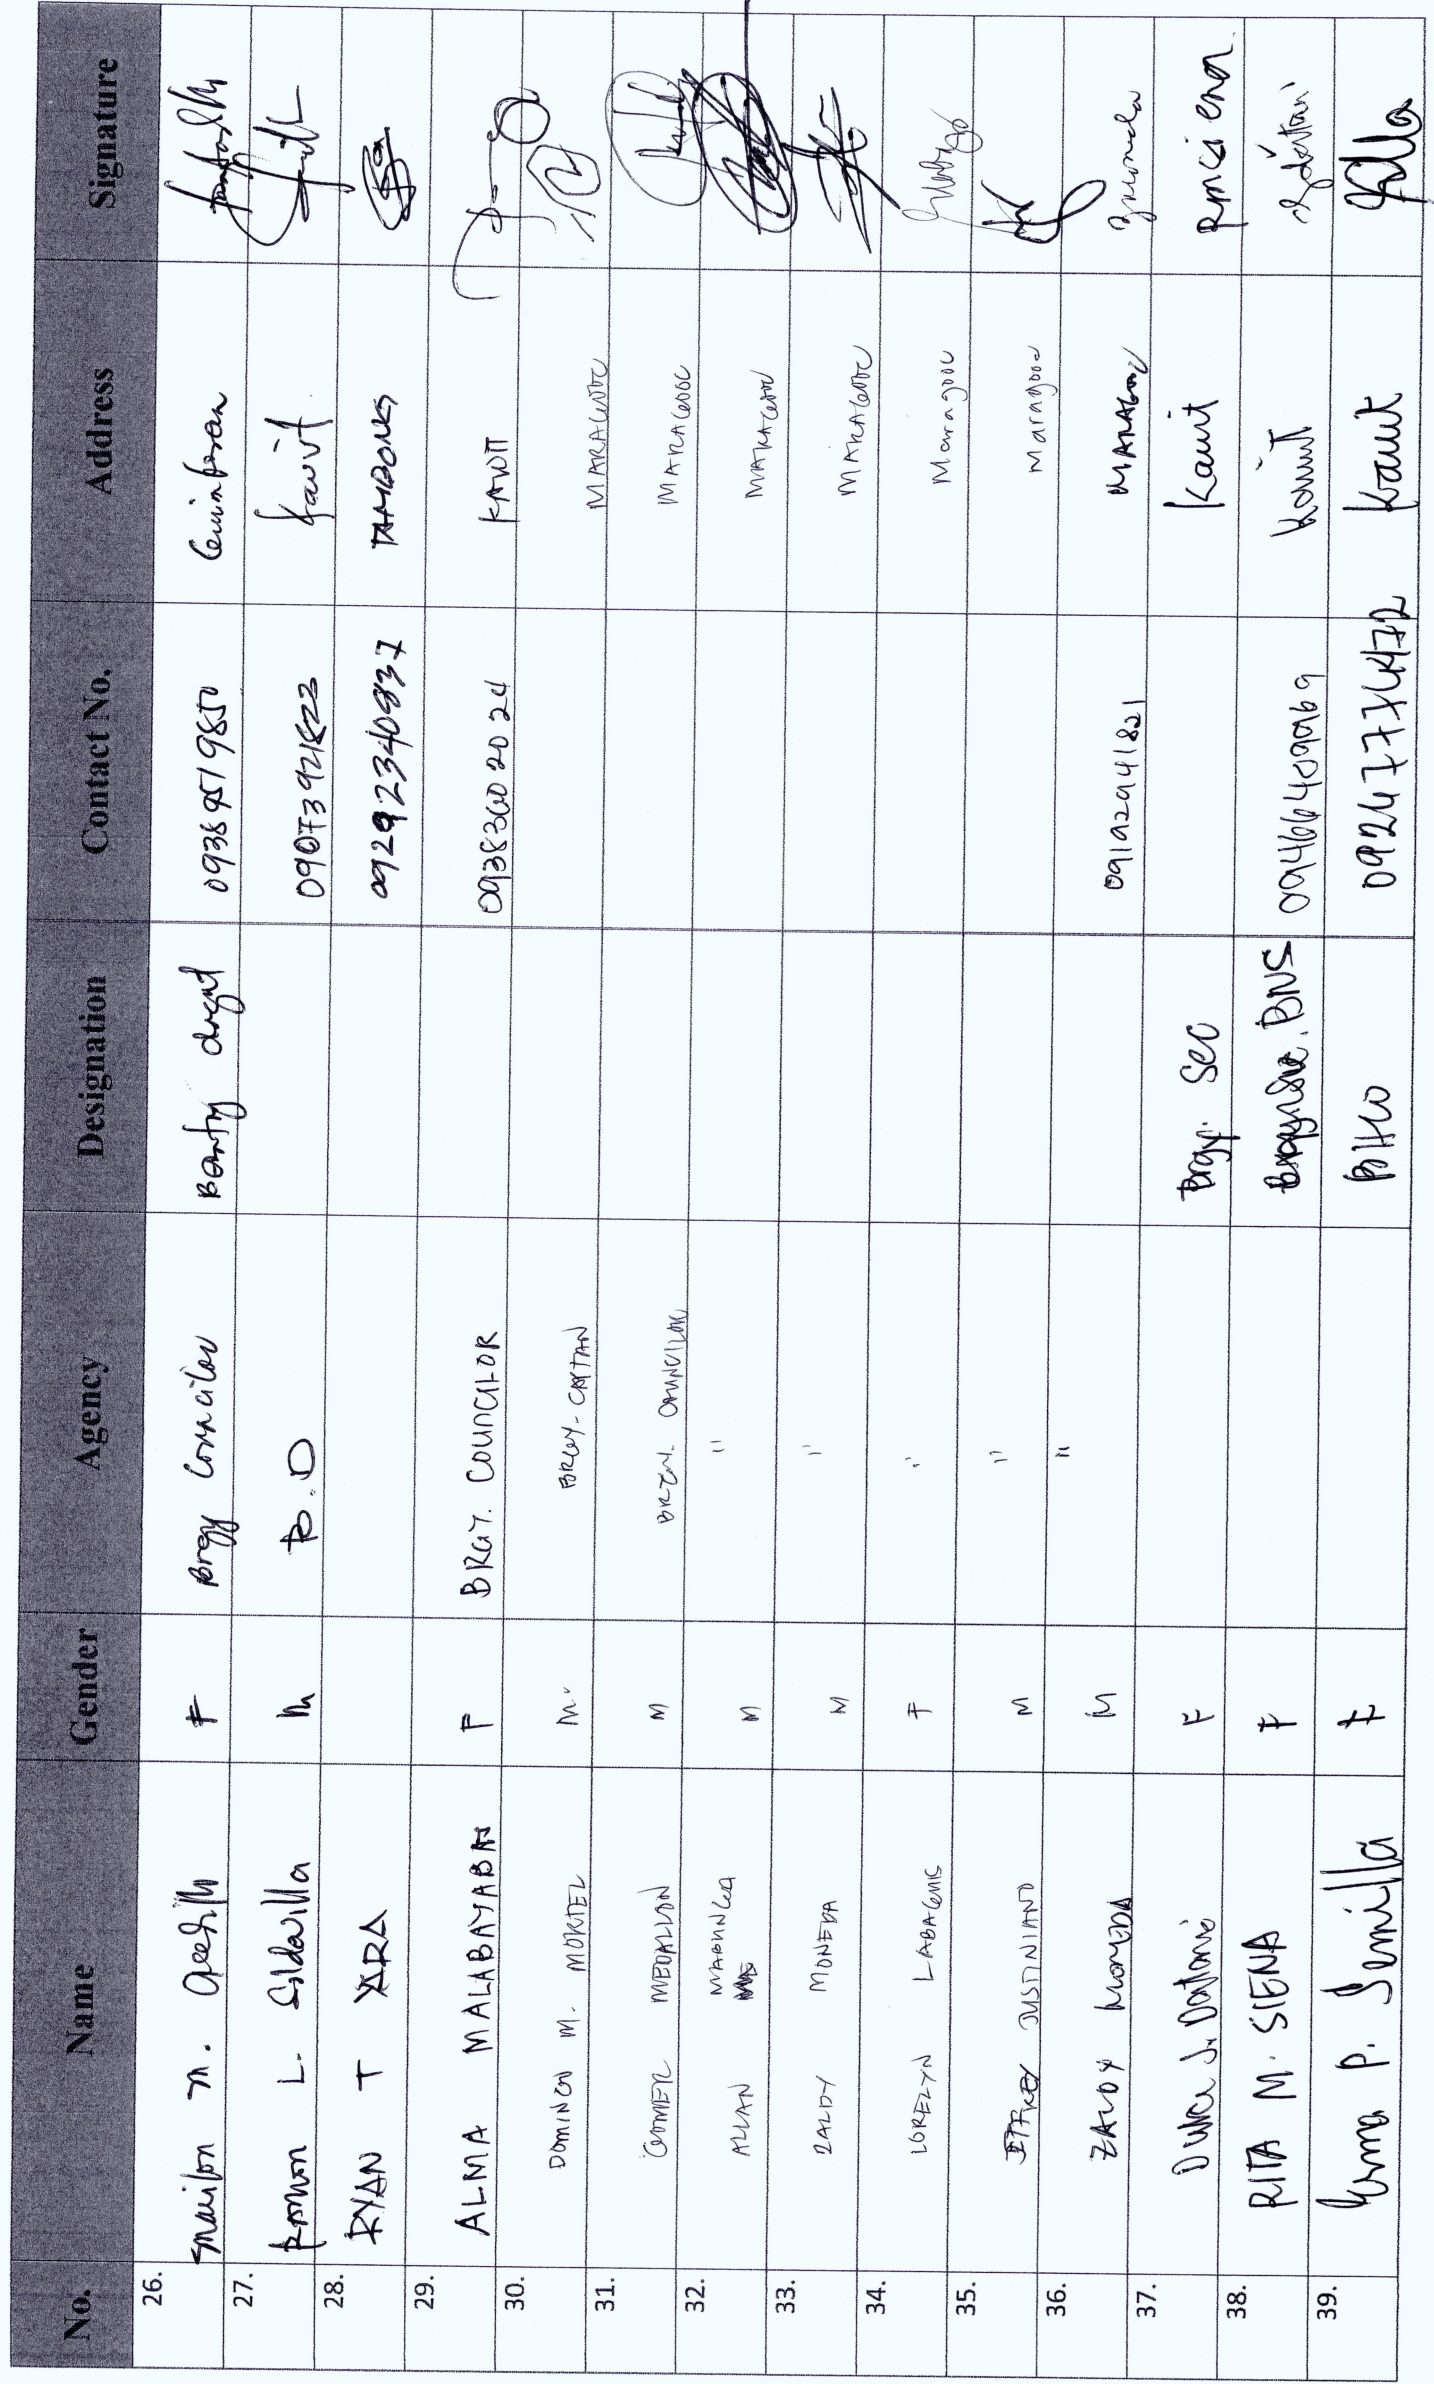 No. Name Gender Agency Designation Contact No. Address Signature
26. Marilon M. F Brgy Councilor Bantay dagat
27. Ramon L. Sildavilla M B.D 09073921822 Kawit
28. RYAN T YARA 09292340837 TAMBONG
29. ALMA MALABAYABAS F BRGY. COUNCILOR 09383602024 KAWIT
30. DOMINGO M. MORTEL M. BRGY. CAPTAN MARAGOOC
31. GOMER MEDALLON M BRGY. COUNCILOR MARAGOOC
32. ALLAN MABUNGA M " MARAGOOC
33. ZALDY MONEDA M " MARAGOOC
34. LORELYN LABAGUIS F " Maragooc
35. JEFFREY JUSTINIANO M " Maragooc
36. ZALDY MOMEDA M " 09192941821 MARAGOOC
37. Dulce J. Dattoni F Brgy. Sec Kawit
38. RITA M. SIENA F BNS 09466489969 Kawit
39. Erma P. Semilla F BHW 09247774472 Kawit